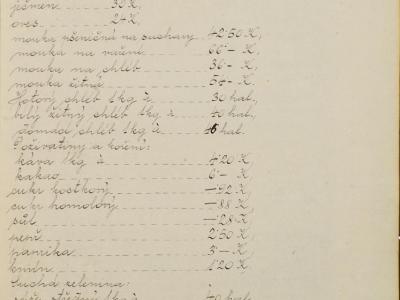 ječmen 30 K,
oves 24 K,
mouka pšeničná na suchary 42·50 K,
mouka na vaření 66·– K,
mouka na chléb 36·– K,
mouka žitná 54·– K,
Hotový chléb 1 kg à 30 hal.,
bílý žitný chléb 1 kg à 40 hal.,
domácí chléb 1 kg à 46 hal.
Poživatiny a koření:
káva 1 kg à 4·20 K,
kakao 6·– K,
cukr kostkový –·92 K,
cukr homolový –·88 K,
sůl –·28 K,
pepř 2·50 K,
paprika 3·– K,
kmín 1·20 K,
Suchá zelenina:
1 kg à 40 hal.